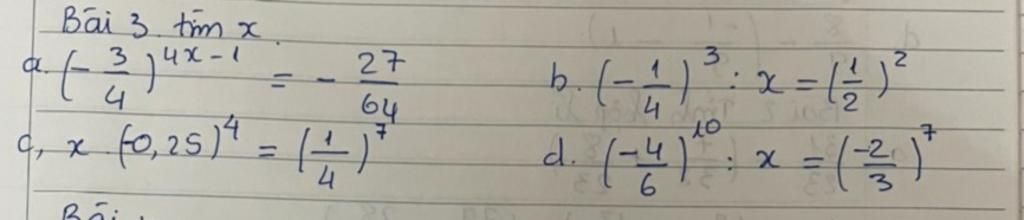 Bài 3. tìm x.
a. (-3/4)^(4x-1) = -27/64 b. (-1/4)^3 : x = (1/2)^2
c, x (-0,25)^4 = (1/4)^7 d. (-4/6)^10 : x = (-2/3)^7
Bài